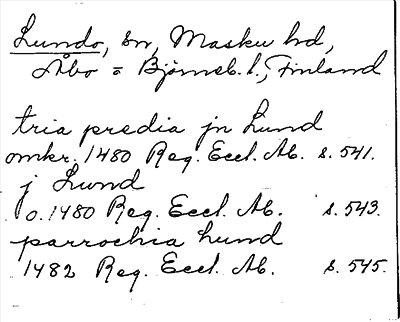 Lundo, sn, Masku hd,
Åbo = Björneb. l., Finland
tria predia jn Lund
omkr. 1480 Reg. Eccl. Ab. s. 541.
j Lund
o. 1480 Reg. Eccl. Ab. s. 543.
parrochia lund
1482 Reg. Eccl. Ab. s. 545.